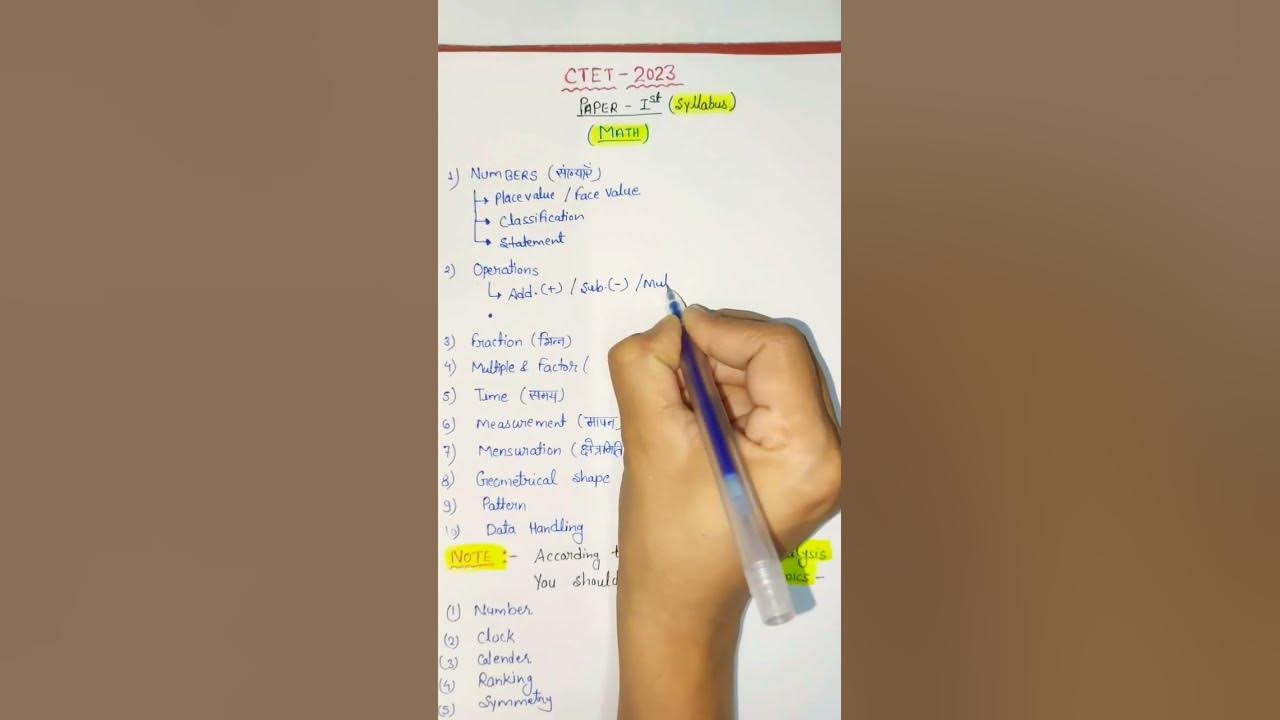 CTET - 2023
PAPER - Ist (Syllabus)
(MATH)
1) NumBERS (संख्याएँ)
Place value / Face value
Classification
Statement
2) Operations
Add. (+) / Sub. (-) / Mul
3) Fraction (भिन्न)
4) Multiple & Factor (
5) Time (समय)
6) Measurement (मापन)
7) Mensuration (क्षेत्रमिति
8) Geometrical shape
9) Pattern
10) Data Handling
NOTE :- According
You should
(1) Number
(2) Clock
(3) Calender
(4) Ranking
(5) Symmetry